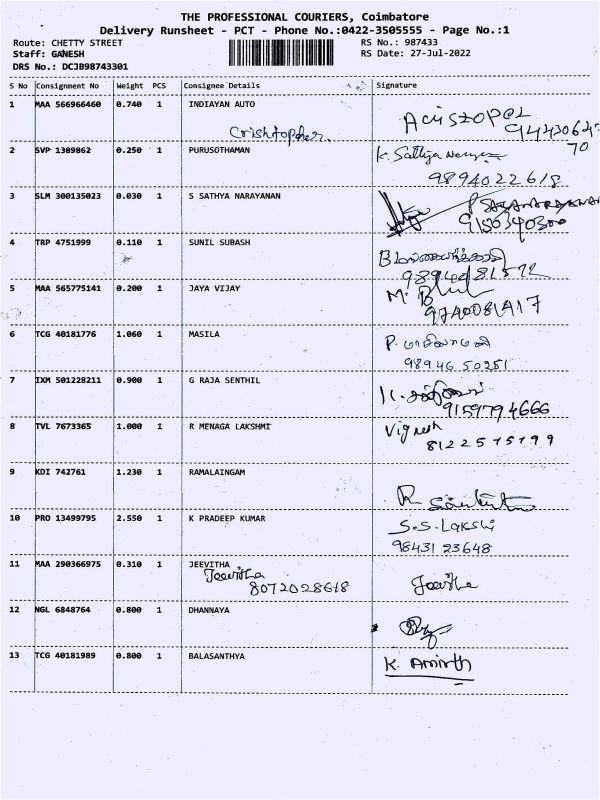 THE PROFESSIONAL COURIERS, Coimbatore
Delivery Runsheet - PCT - Phone No.:0422-3505555 - Page No.:1
Route: CHETTY STREET RS No.: 987433
Staff: GANESH RS Date: 27-Jul-2022
DRS No.: DCJB98743301
S No Consignment No Weight PCS Consignee Details Signature
1 MAA 566966460 0.740 1 INDIAYAN AUTO
Crishtopher
70
2 SVP 1389862 0.250 1 PURUSOTHAMAN K. Sathya
9894022618
3 SLM 300135023 0.030 1 S SATHYA NARAYANAN
4 TRP 4751999 0.110 1 SUNIL SUBASH
5 MAA 565775141 0.200 1 JAYA VIJAY M.
9740081417
6 TCG 40181776 1.060 1 MASILA P. மாசிலாமணி
98946 50251
7 IXM 501228211 0.900 1 G RAJA SENTHIL
9159794666
8 TVL 7673365 1.000 1 R MENAGA LAKSHMI Vignesh
8122515199
9 KDI 742761 1.230 1 RAMALAINGAM
R
10 PRO 13499795 2.550 1 K PRADEEP KUMAR S.S. Lakshi
98431 23648
11 MAA 290366975 0.310 1 JEEVITHA
Jeevitha Jeevitha
8072028618
12 NGL 6848764 0.800 1 DHANNAYA
13 TCG 40181989 0.800 1 BALASANTHYA K. Amirth